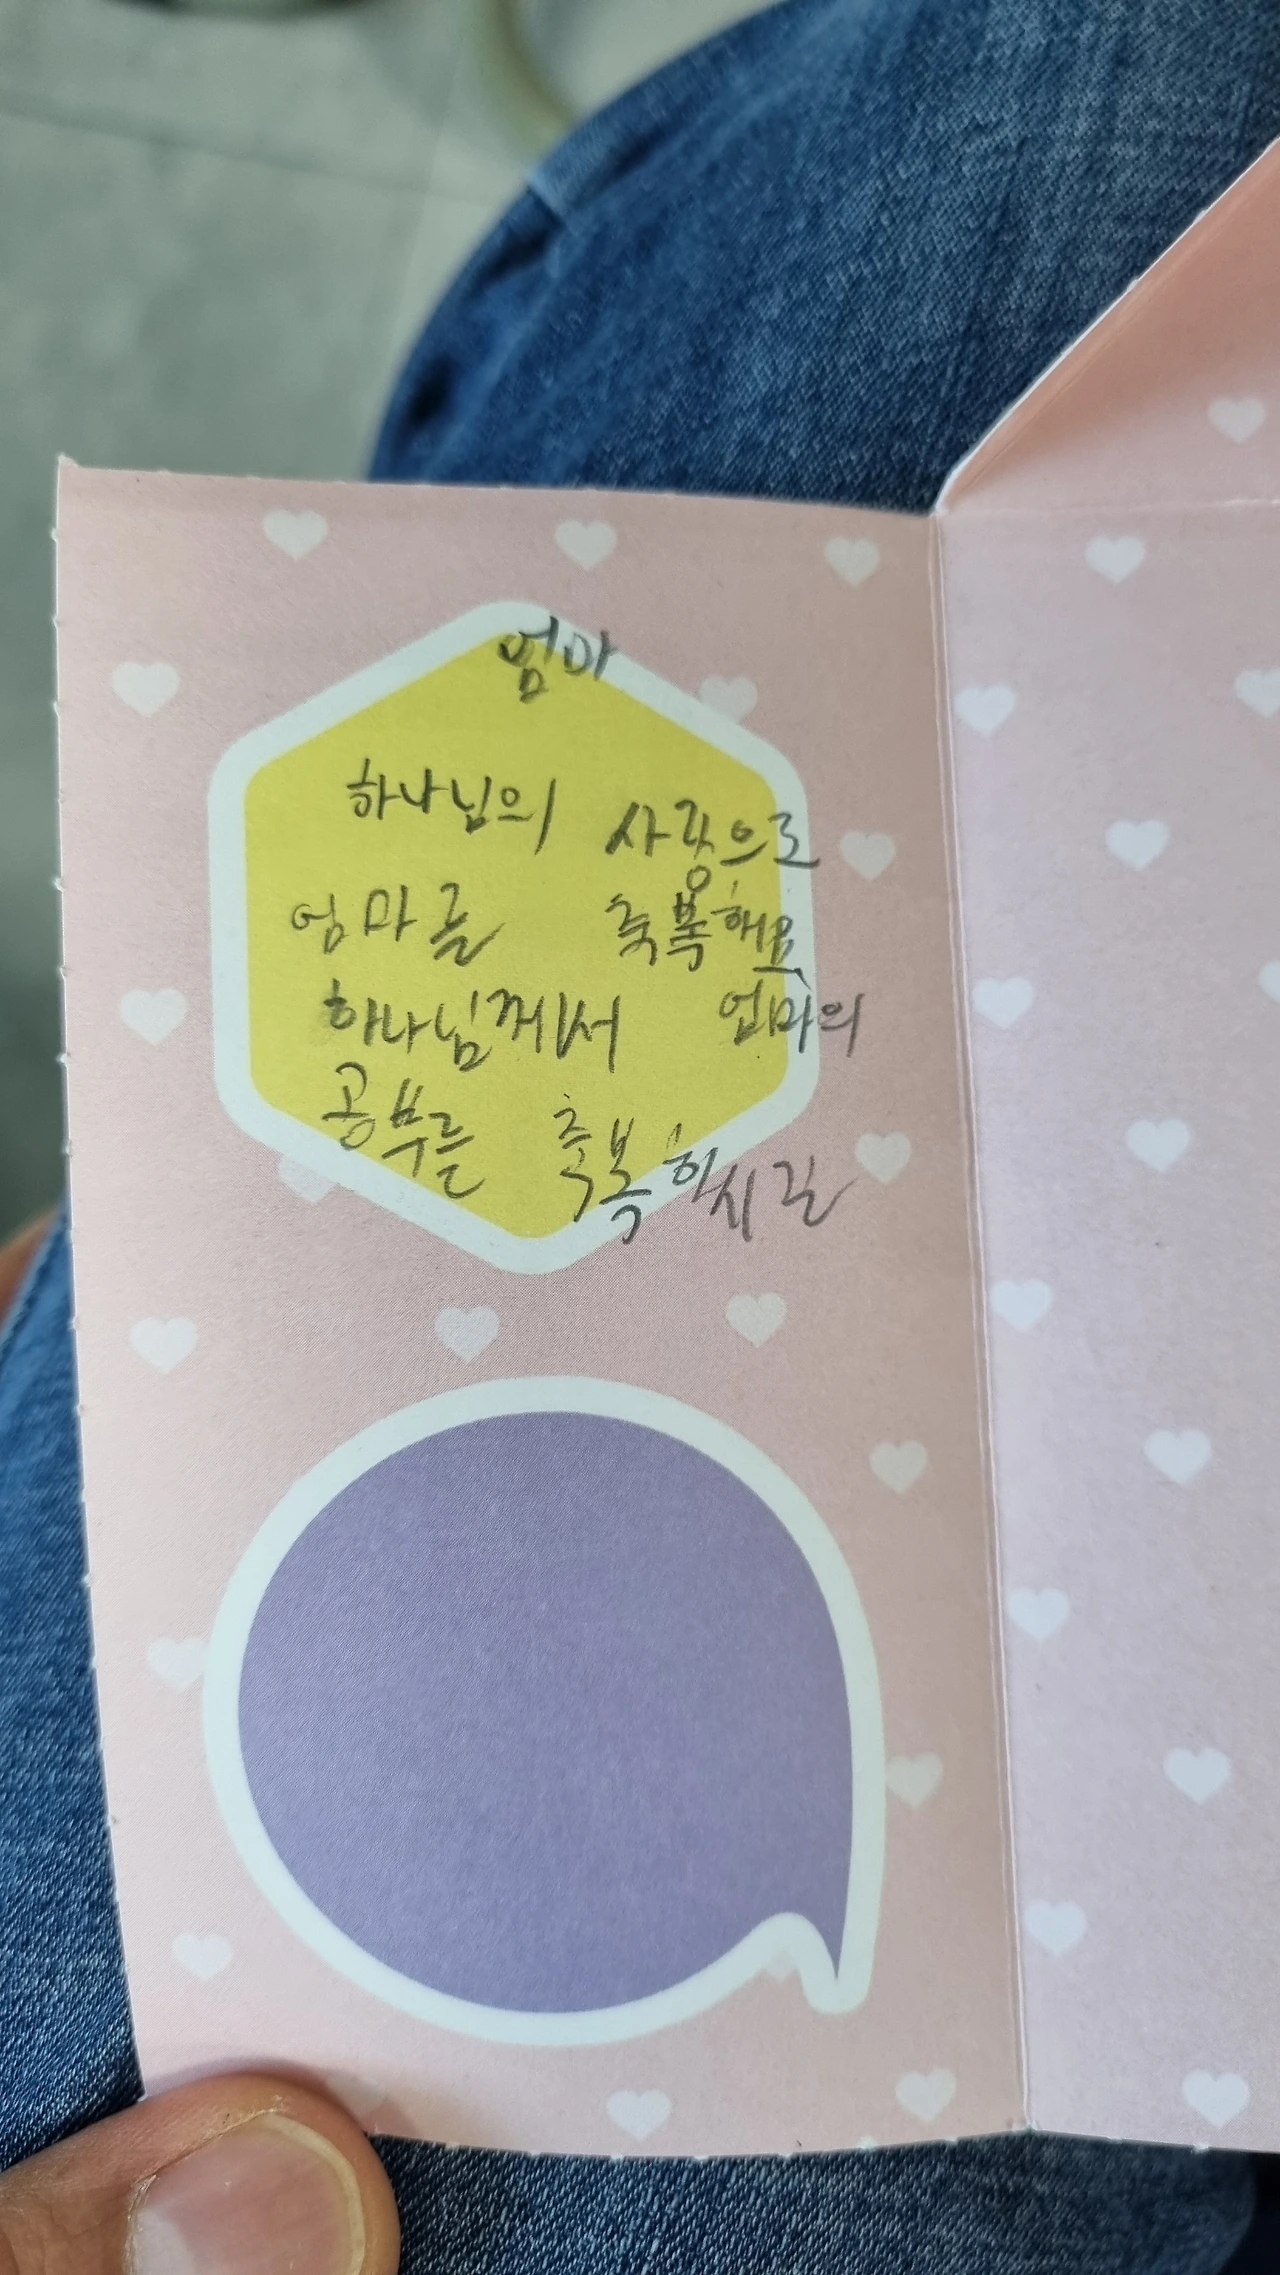 엄마
하나님의 사랑으로
엄마를 축복해요
하나님께서 엄마의
공부를 축복하시길